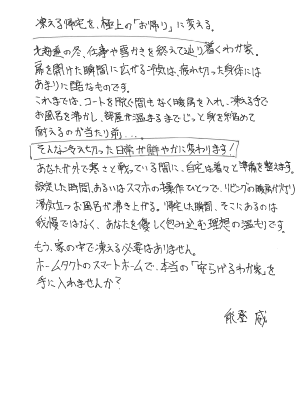 凍える帰宅を、極上の「お帰り」に変える。
北海道の冬、仕事や雪かきを終えて辿り着くわが家。
扉を開けた瞬間に広がる冷気は、疲れ切った身体には
あまりに酷なものです。
これまでは、コートを脱ぐ間もなく暖房を入れ、凍える手で
お風呂を沸かし、部屋が温まるまでじっと身を縮めて
耐えるのが当たり前…。
そんな冷え切った日常が鮮やかに変わります!
あなたが外で寒さと戦っている間に、自宅は着々と準備を整えます。
設定した時間、あるいはスマホの操作ひとつで、リビングの暖房が灯り
湯気立つお風呂が沸き上がる。帰宅した瞬間、そこにあるのは
我慢ではなく、あなたを優しく包み込む理想の温もりです。
もう、家の中で凍える必要はありません。
ホームタクトのスマートホームで、本当の「安らげるわが家」を
手に入れませんか?
能登 威